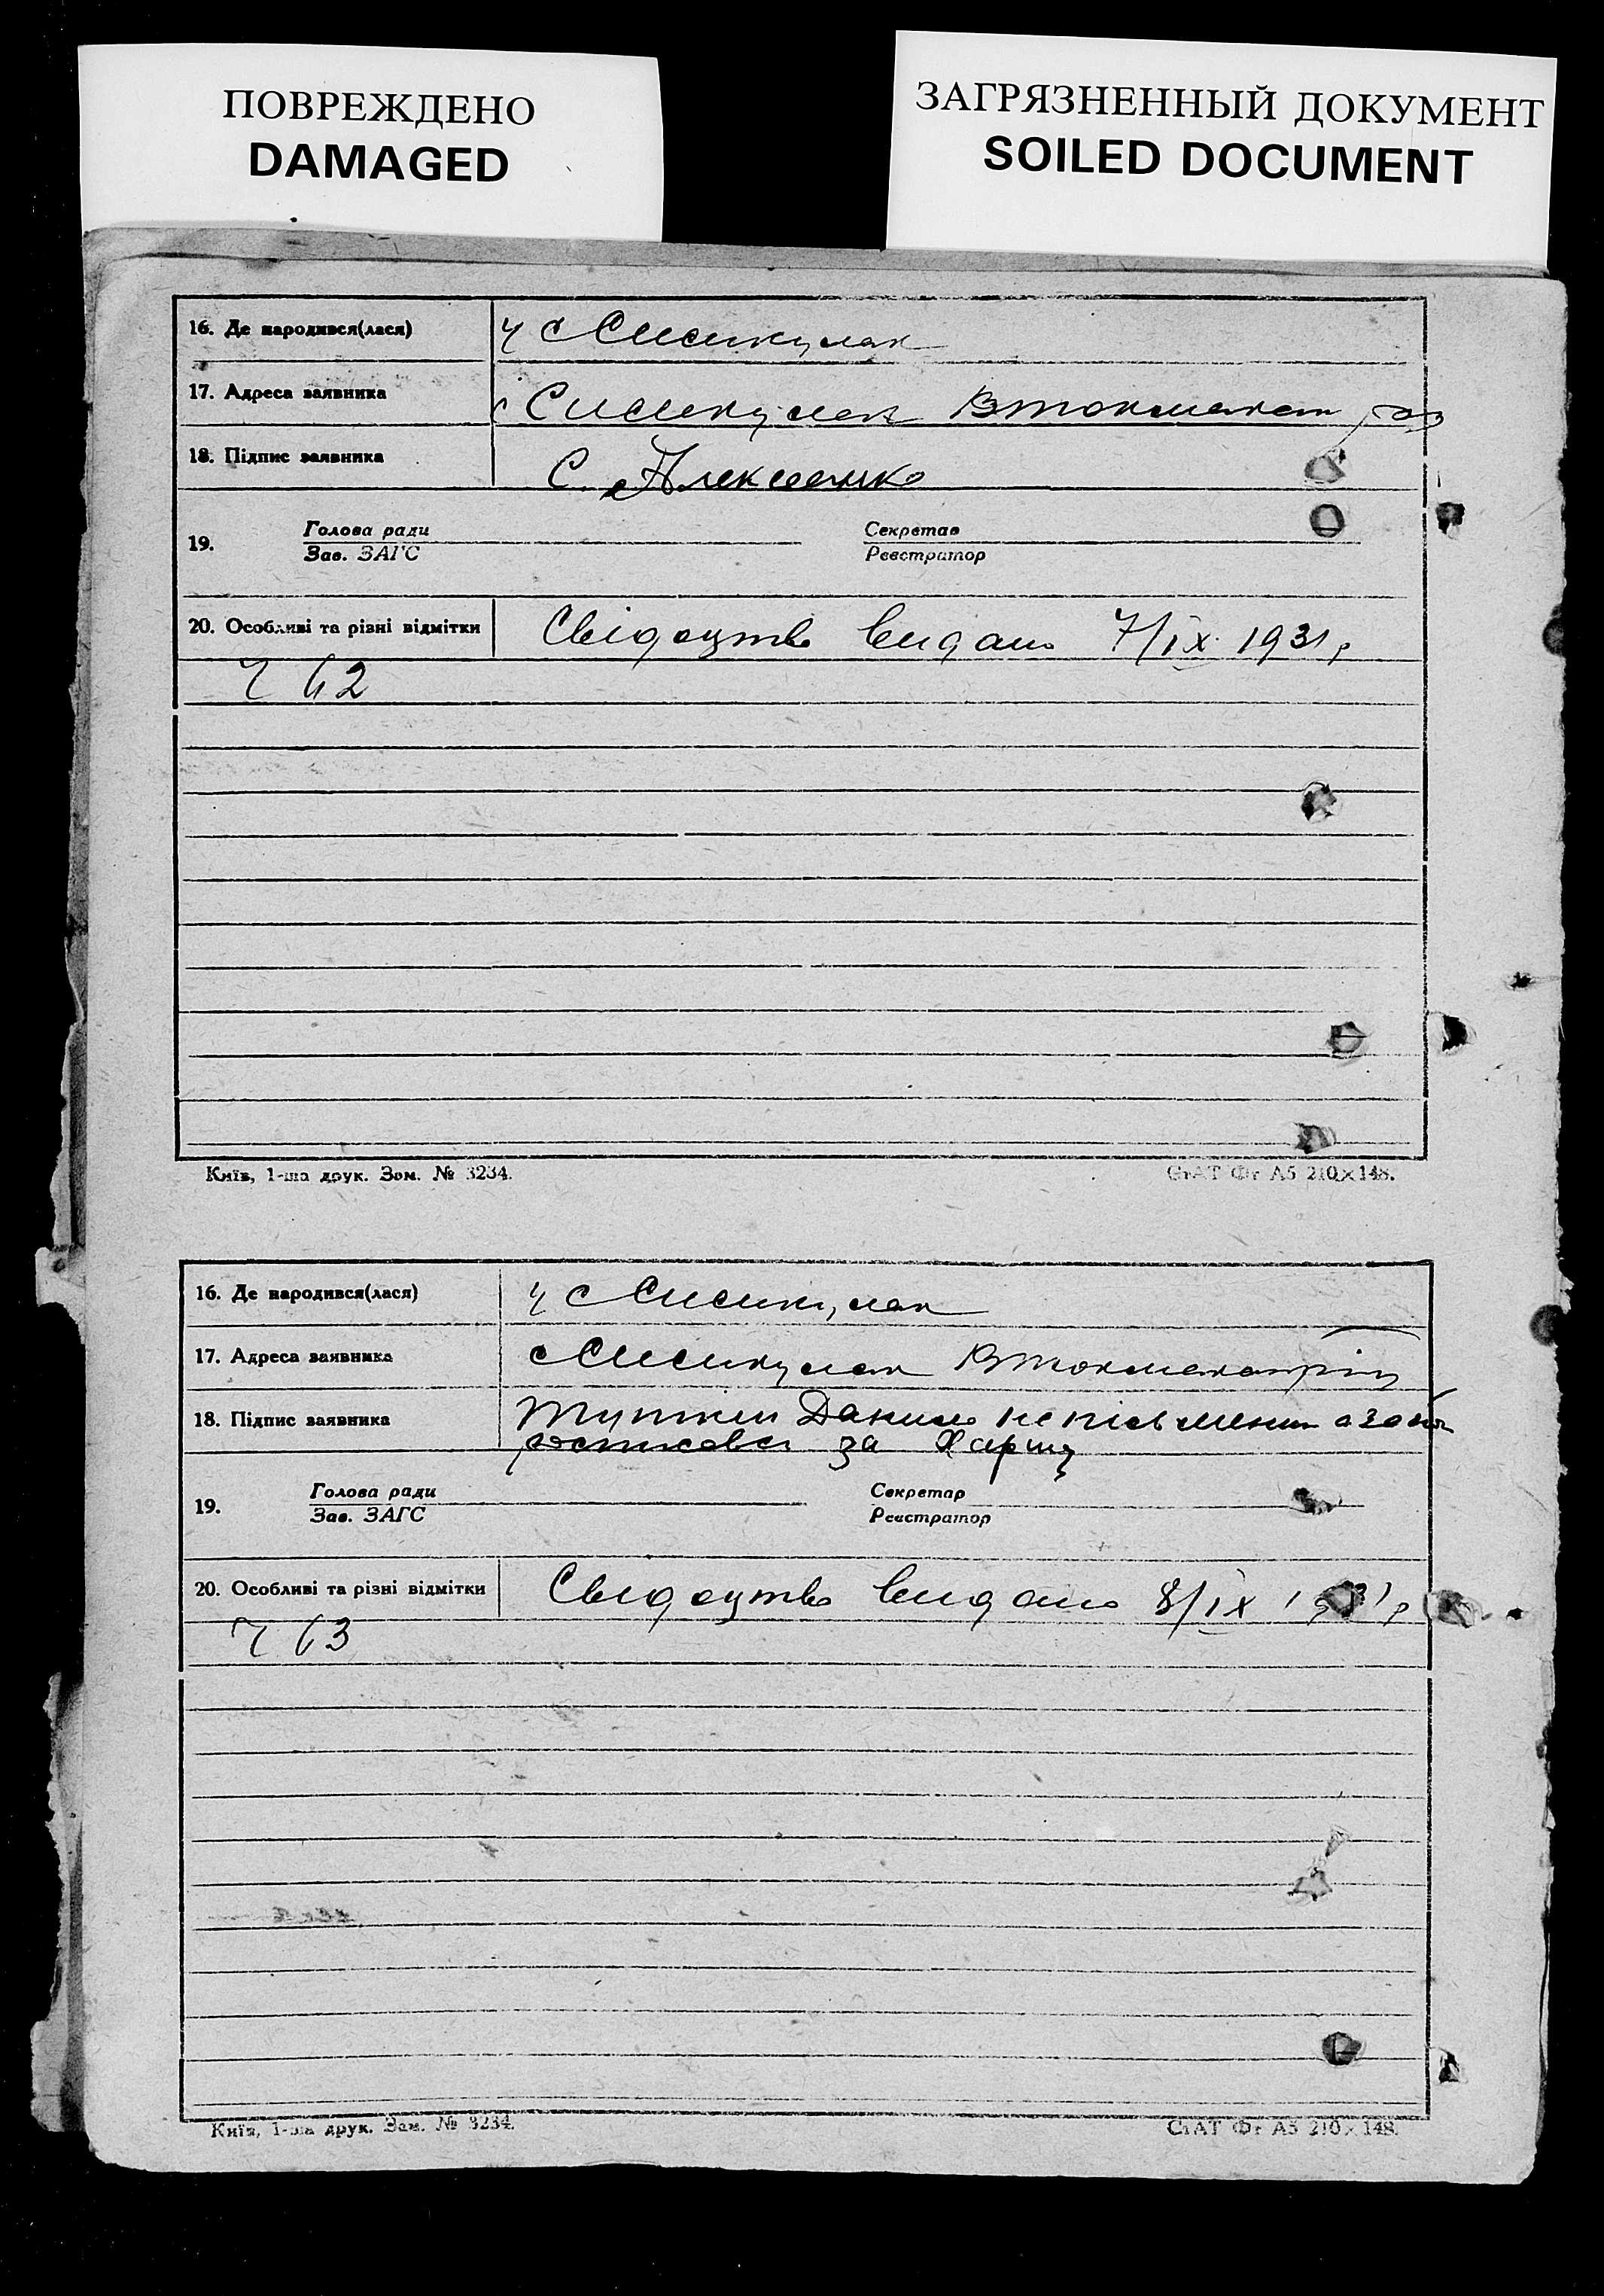 ПОВРЕЖДЕНО
DAMAGED
ЗАГРЯЗНЕННЫЙ ДОКУМЕНТ
SOILED DOCUMENT
16. Де народився(лася)
17. Адреса заявника
18. Підпис заявника С. Алексеенко
19. Голова ради Секретар
Зав. ЗАГС Реєстратор
20. Особливі та різні відмітки Свідоцтво видано 7/IX 1931 р
Ч 62
Київ, 1-ша друк. Зам. № 3234. СтАТ Фт А5 210×148.
16. Де народився(лася)
17. Адреса заявника
18. Підпис заявника Данило неписьменний а за
за
19. Голова ради Секретар
Зав. ЗАГС Реєстратор
20. Особливі та різні відмітки Свідоцтво видано 8/IX 1931 р
Ч 63
Київ, 1-ша друк. Зам. № 3234. СтАТ Фт А5 210×148.